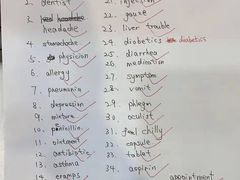 2. dentist
3. headache
4. stomachache
5. physician
6. allergy
7. pneumonia
8. depression
9. mixture
10. penicillin
11. ointment
12. antibiotic
13. asthma
14. cramps
21. injection
22. gauze
23. liver trouble
24. diabetics diabetics
25. diarrhea
26. medication
27. symptom
28. vomit
29. phlegm
30. oculist
31. feel chilly
32. capsule
33. tablet
34. aspirin
appointment